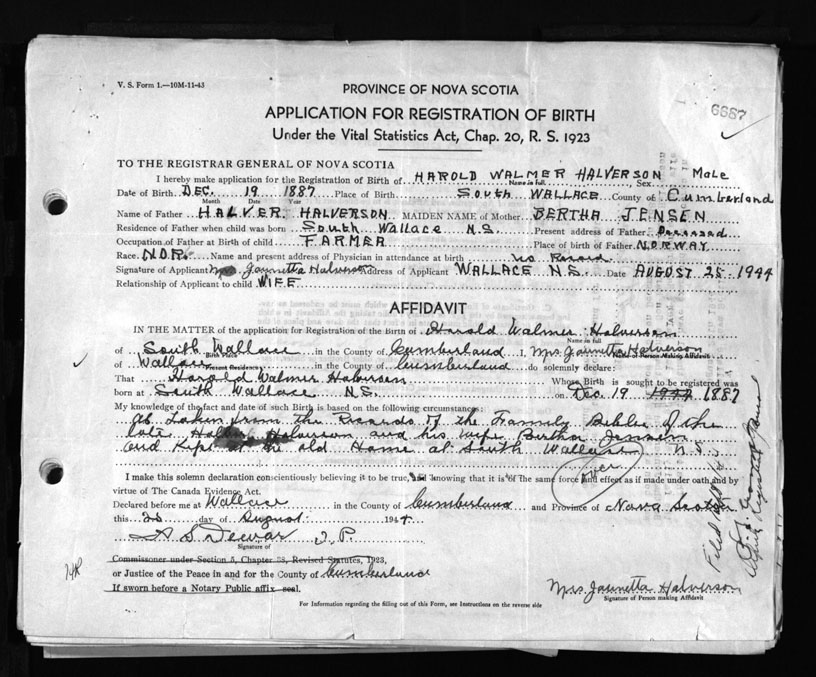 V. S. Form 1.—10M-11-43
6687
PROVINCE OF NOVA SCOTIA
APPLICATION FOR REGISTRATION OF BIRTH
Under the Vital Statistics Act, Chap. 20, R. S. 1923
TO THE REGISTRAR GENERAL OF NOVA SCOTIA
I hereby make application for the Registration of Birth of HAROLD WALMER HALVERSON, Sex Male
Name in full
Date of Birth DEC. 19 1887 Place of Birth South WALLACE County of Cumberland
Month Date Year
Name of Father HALVER HALVERSON MAIDEN NAME of Mother BERTHA JENSEN
Residence of Father when child was born South Wallace N.S. Present address of Father Deceased
Occupation of Father at Birth of child FARMER Place of birth of Father NORWAY
Race NOR. Name and present address of Physician in attendance at birth no Record
Signature of Applicant Mrs Jaunetta Halverson Address of Applicant WALLACE N.S. Date AUGUST 25 1944
Relationship of Applicant to child WIFE
AFFIDAVIT
IN THE MATTER of the application for Registration of the Birth of Harold Walmer Halverson
Name in full
of South Wallace in the County of Cumberland I, Mrs Jaunetta Halverson
Birth Place Name of Person Making Affidavit
of Wallace in the County of Cumberland do solemnly declare:
Present Residence
That Harold Walmer Halverson Whose Birth is sought to be registered was
Name in full
born at South Wallace N.S. on Dec. 19 1944 1887
My knowledge of the fact and date of such Birth is based on the following circumstances:
Taken from the Records of the Family Bible of the
late Halverson and his wife Bertha Jensen
and Kept at the old Home at South Wallace N.S.
over
I make this solemn declaration conscientiously believing it to be true, and knowing that it is of the same force and effect as if made under oath and by
virtue of The Canada Evidence Act.
Declared before me at Wallace in the County of Cumberland and Province of Nova Scotia
this 25 day of August 1944
A S Dewar J. P.
Signature of
Commissoner under Section 5, Chapter 38, Revised Statutes, 1923,
or Justice of the Peace in and for the County of Cumberland
If sworn before a Notary Public affix seal.
Mrs Jaunetta Halverson
Signature of Person making Affidavit
For Information regarding the filling out of this Form, see Instructions on the reverse side
Filed
Deputy Registrar